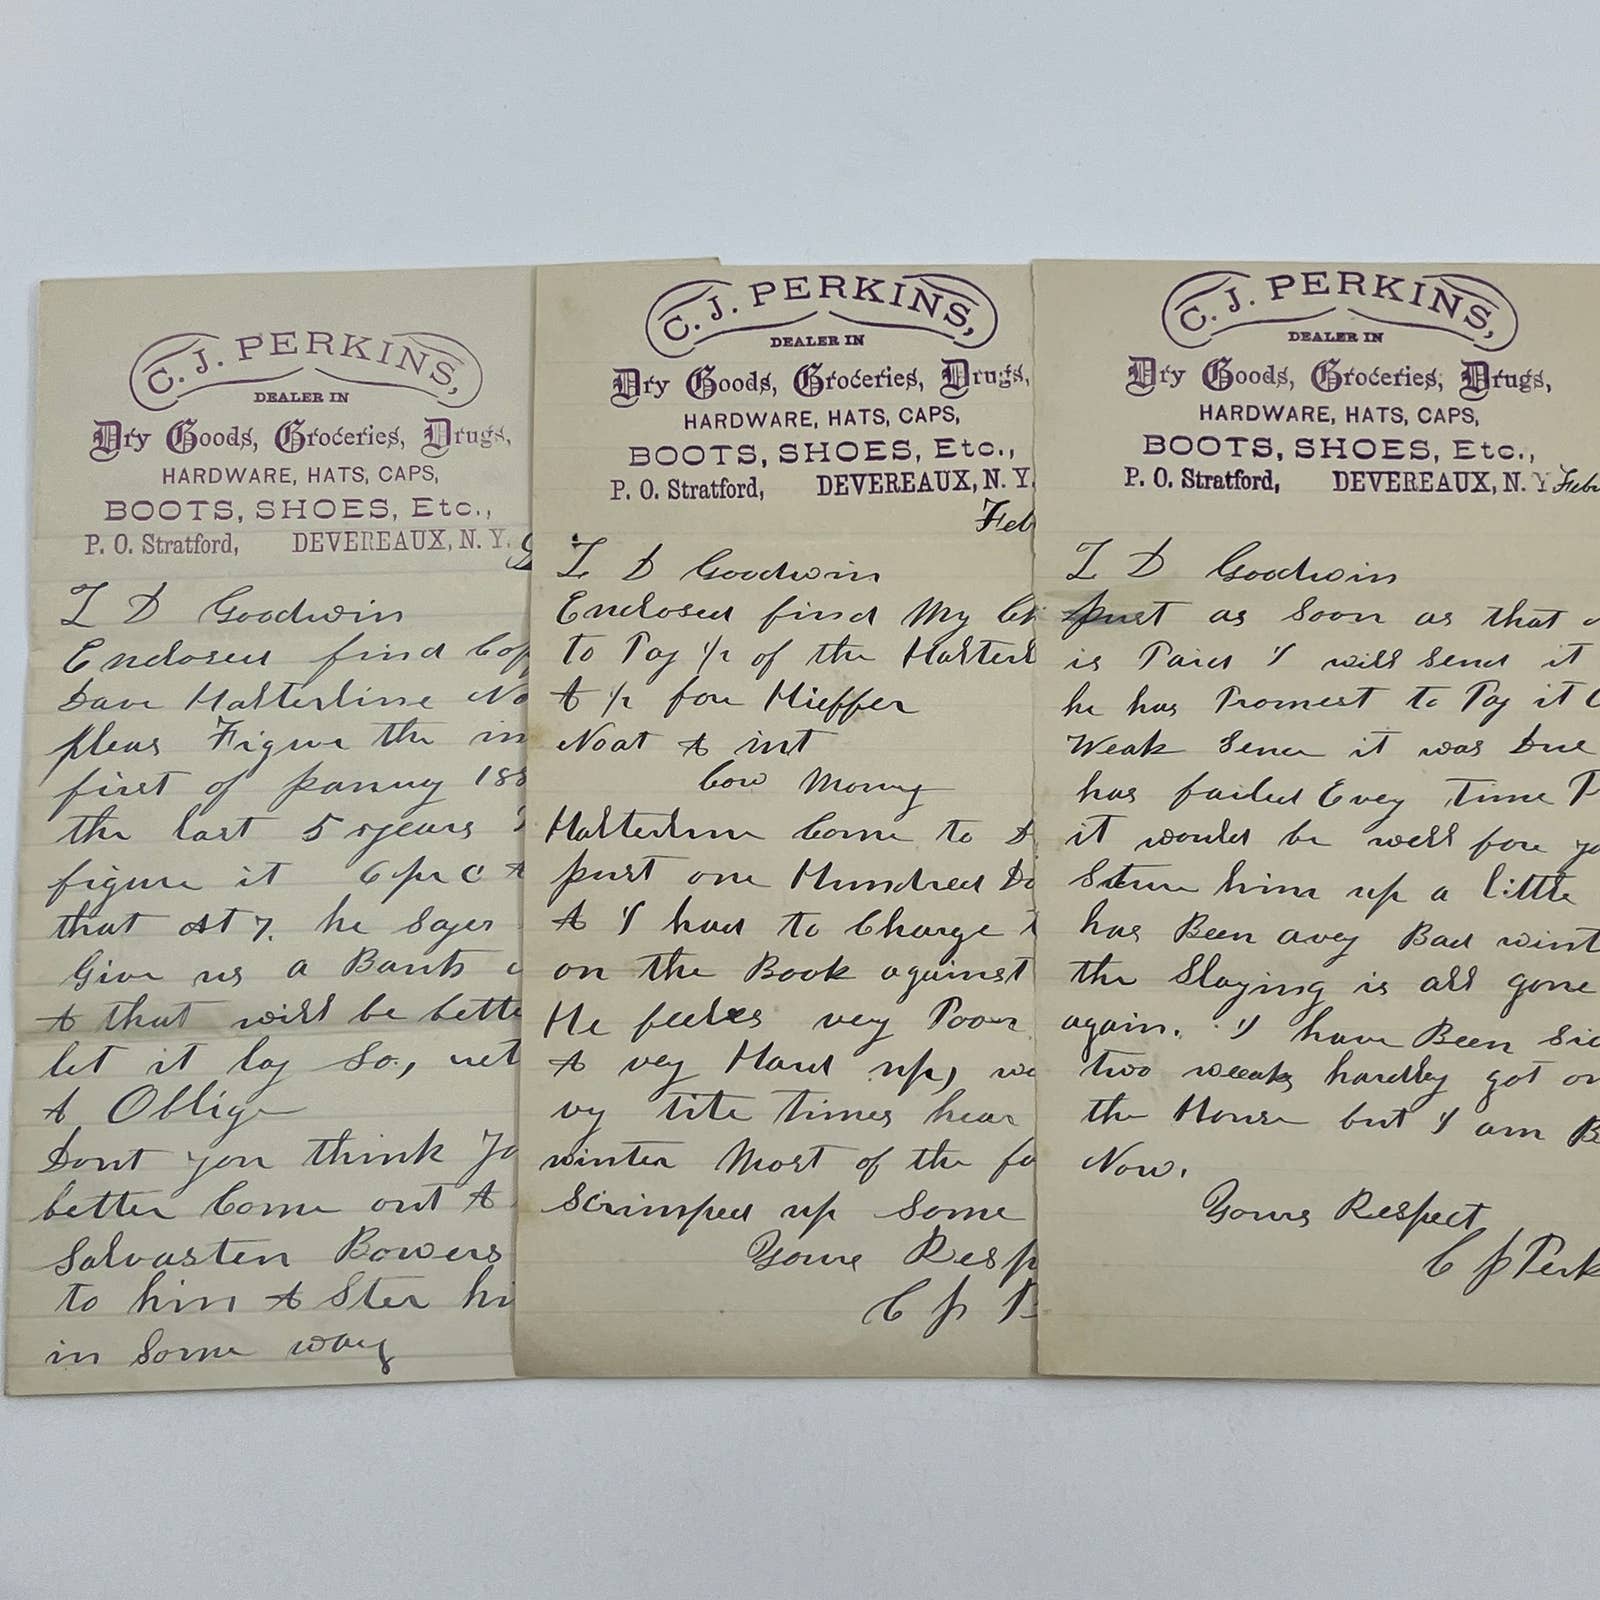 C. J. PERKINS,
DEALER IN
Dry Goods, Groceries, Drugs,
HARDWARE, HATS, CAPS,
BOOTS, SHOES, Etc.,
P. O. Stratford, DEVEREAUX, N. Y.
I D Goodwin
Enclosed find Cop
Dave Halterline No
pleas Figure the in
first of January 188
the last 5 years
figure it 6 pr c &
that at 7. he sayes
Give us a Bank
& that will be bette
let it lay so,
& Oblige
Dont you think yo
better Come out &
Salvasten Bowers
to him & Ster hi
in some way
C. J. PERKINS,
DEALER IN
Dry Goods, Groceries, Drugs,
HARDWARE, HATS, CAPS,
BOOTS, SHOES, Etc.,
P. O. Stratford, DEVEREAUX, N. Y.
Feb
I D Goodwin
Enclosed find My Ch
to Pay 1/2 of the Halterl
& 1/2 for Hieffer
Noat & int
Cow Money
Halterline Come to D
just one Hundred Do
& I had to Charge
on the Book against
He feeles vey Poor
& vey Hard up, we
vy tite times hear
winter Most of the fo
Scrimped up Some
Yours Resp
C J P
C. J. PERKINS,
DEALER IN
Dry Goods, Groceries, Drugs,
HARDWARE, HATS, CAPS,
BOOTS, SHOES, Etc.,
P. O. Stratford, DEVEREAUX, N. Y. Febr
I D Goodwin
Just as Soon as that
is Paid I will Send it
he has Promest to Pay it
Weak Sence it was Due
has failed Evey Time
it would be well for yo
him up a little
has Been avey Bad wint
the Slaying is all gone
again. I have Been Sic
two weeaks hardley got o
the House but I am B
Now.
Yours Respect
C J Perk